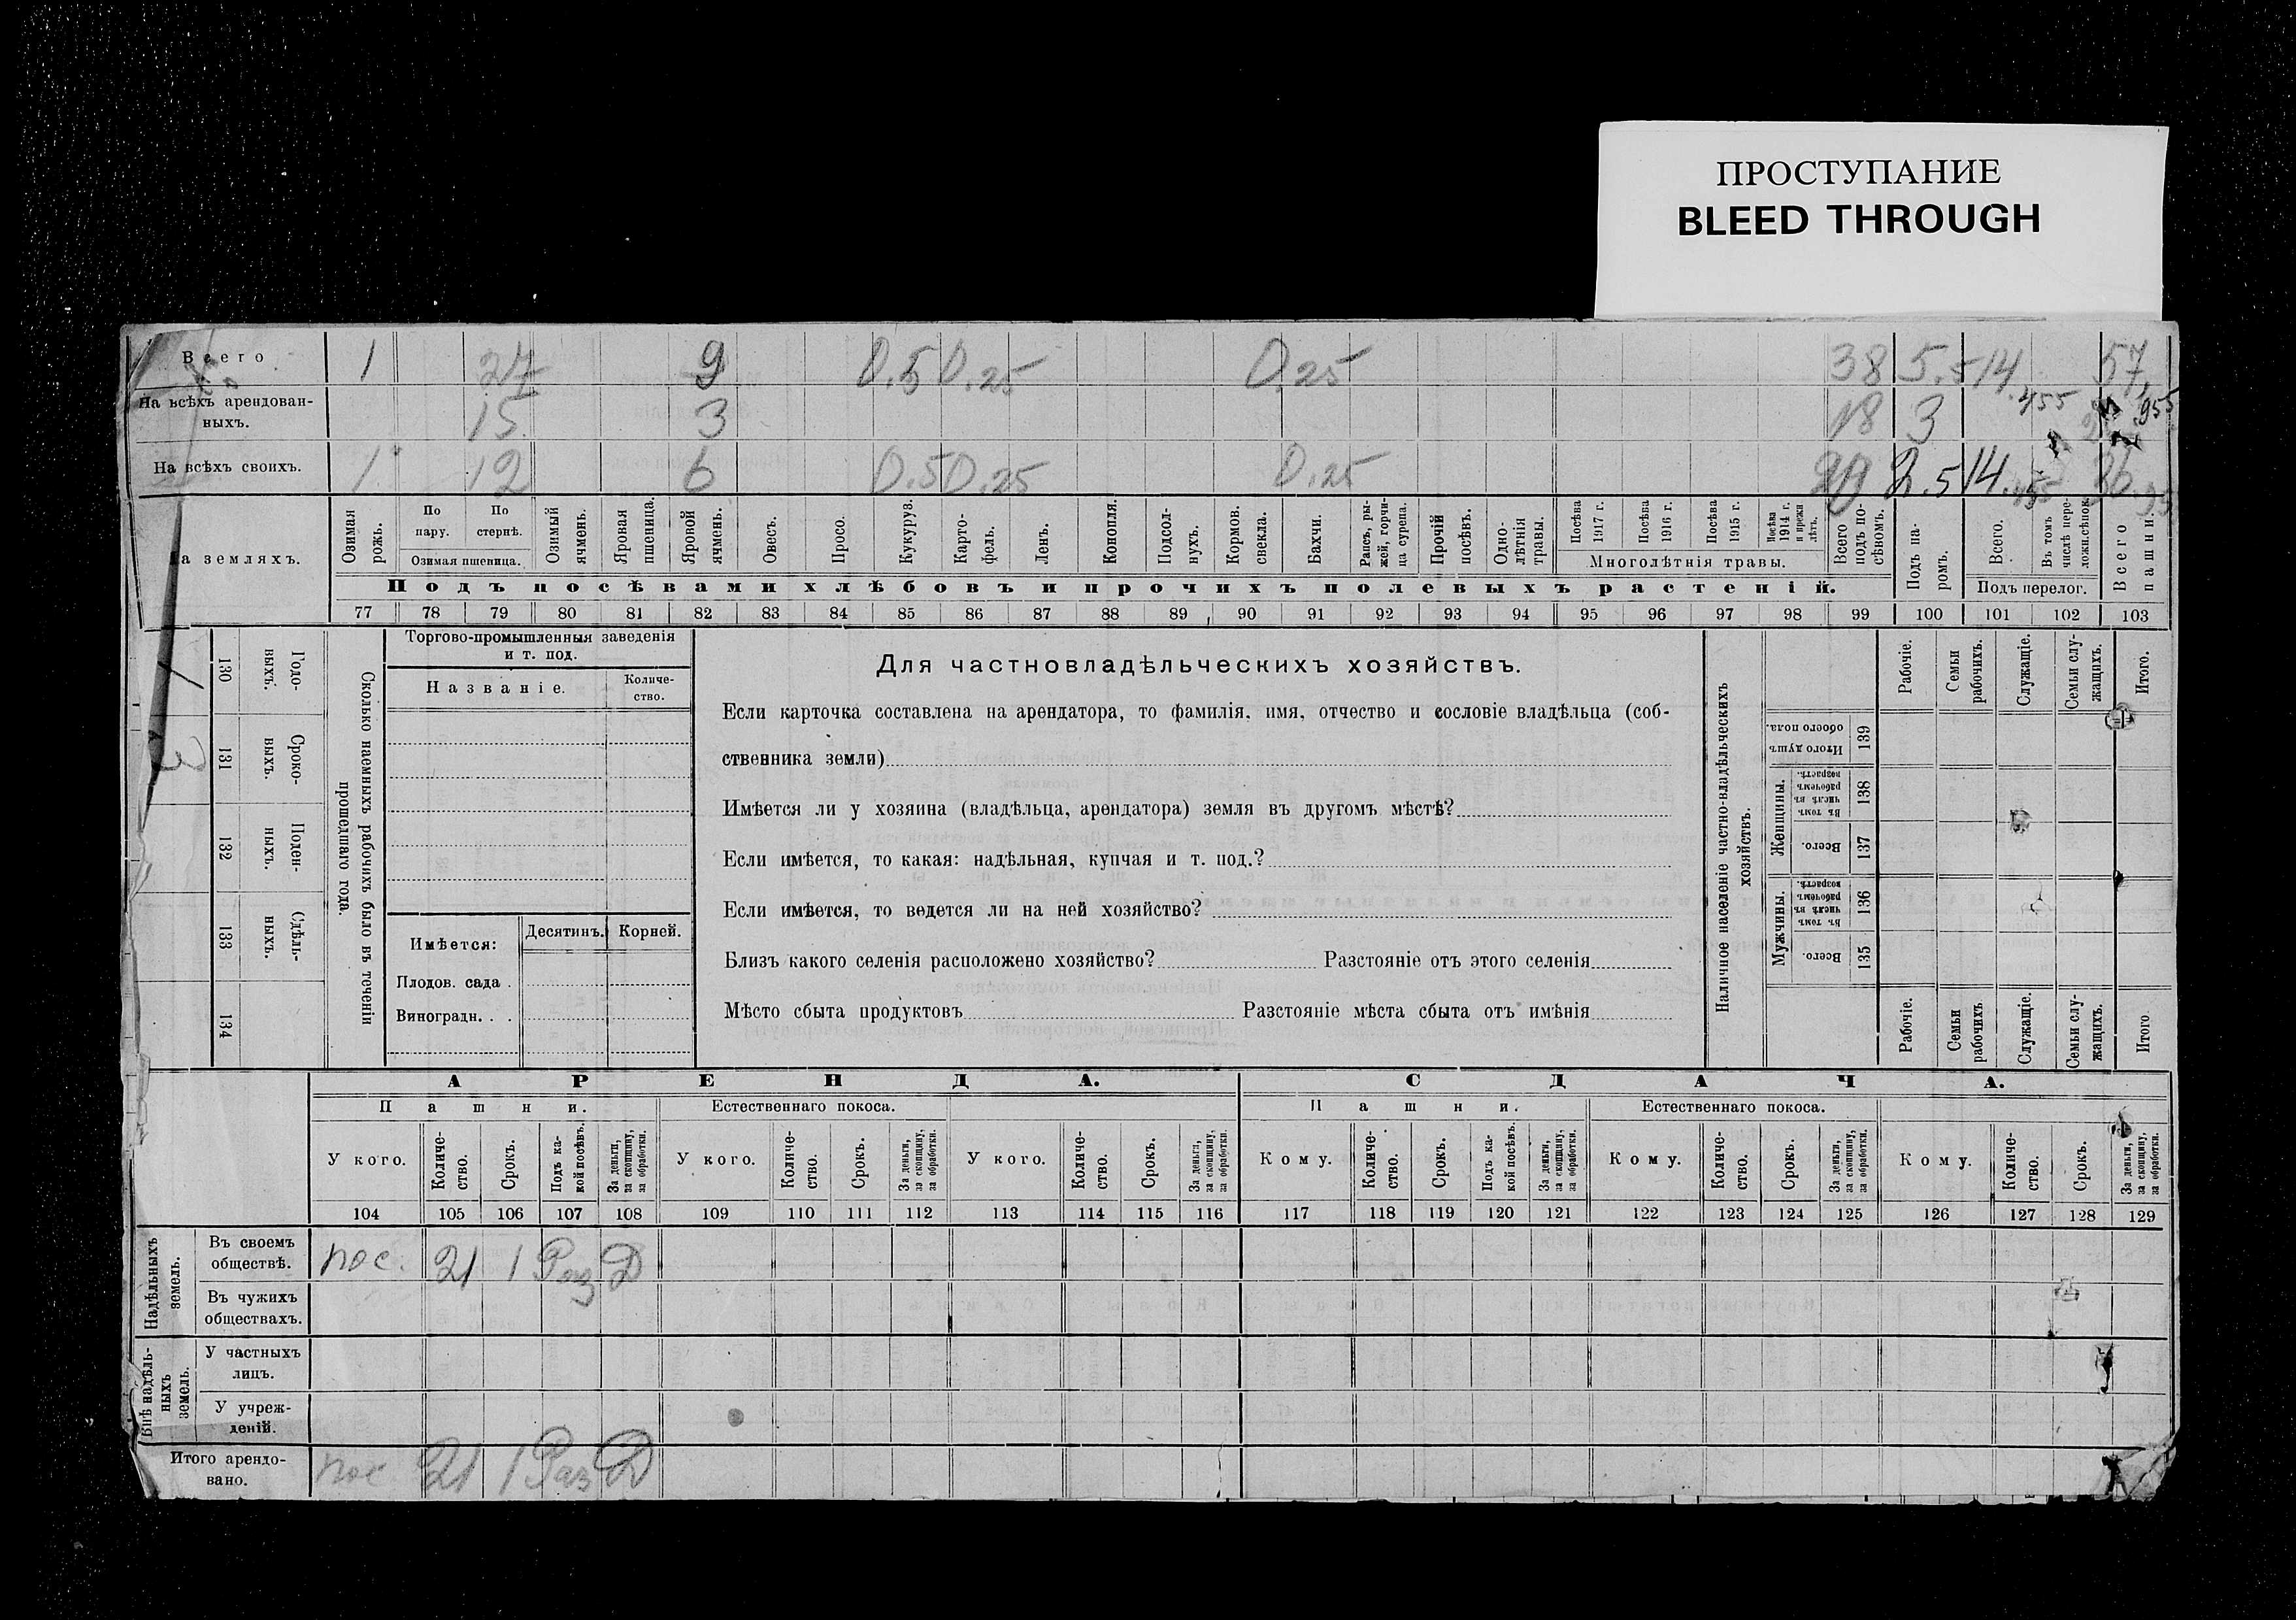 ПРОСТУПАНИЕ
BLEED THROUGH
Всего 1 27 9 0.5 0.25 0.25 38 5.5 14.455 57,955
На всѣхъ арендован-
ныхъ. 15 3 18 3
На всѣхъ своихъ. 1 12 6 0.5 0.25 0.25 20 2.5 14.
земляхъ.
Озимая рожь.
По пару.
По стернѣ.
Озимая пшеница.
Озимый ячмень.
Яровая пшеница.
Яровой ячмень.
Овесъ.
Просо.
Кукуруз.
Карто-
фель.
Ленъ.
Конопля.
Подсол-
нухъ.
Кормов. свекла.
Бахчи.
Рапсъ, ры-
жей, горчи-
ца сурепа.
Прочій посѣвъ.
Одно-
лѣтнія травы.
Посѣва 1917 г.
Посѣва 1916 г.
Посѣва 1915 г.
Посѣва 1914 г. и прежн лѣтъ.
Многолѣтнія травы.
Всего подъ по-
сѣвомъ.
Подъ па-
ромъ.
Всего.
Въ томъ числѣ пере-
ложн.сѣнок.
Подъ перелог.
Всего пашни.
Подъ посѣвами хлѣбовъ и прочихъ полевыхъ растеній.
77 78 79 80 81 82 83 84 85 86 87 88 89 90 91 92 93 94 95 96 97 98 99 100 101 102 103
Сколько наемныхъ рабочихъ было въ теченіи
прошедшаго года.
Годо-
выхъ.
130
Сроко-
выхъ.
131
3
Поден-
ныхъ.
132
Сдѣль-
ныхъ.
133
134
Торгово-промышленныя заведенія
и т. под.
Названіе.
Количе-
ство.
Имѣется:
Десятинъ.
Корней.
Плодов. сада .
Виноградн. . .
Для частновладѣльческихъ хозяйствъ.
Если карточка составлена на арендатора, то фамилія, имя, отчество и сословіе владѣльца (соб-
ственника земли)
Имѣется ли у хозяина (владѣльца, арендатора) земля въ другомъ мѣстѣ?
Если имѣется, то какая: надѣльная, купчая и т. под.?
Если имѣется, то ведется ли на ней хозяйство?
Близъ какого селенія расположено хозяйство? Разстояніе отъ этого селенія
Мѣсто сбыта продуктовъ Разстояніе мѣста сбыта отъ имѣнія
Наличное населеніе частно-владѣльческихъ
хозяйствъ.
Рабочіе.
Семьи рабочихъ.
Служащіе.
Семьи слу-
жащихъ.
Итого.
Итого душъ обоего пола.
139
Женщины.
Въ томъ числѣ въ рабочемъ возрастѣ.
138
Всего.
137
Мужчины.
Въ томъ числѣ въ рабочемъ возрастѣ.
136
Всего.
135
Рабочіе.
Семьи рабочихъ
Служащіе.
Семьи слу-
жащихъ.
Итого
АРЕНДА.
СДАЧА.
Пашни.
Естественнаго покоса.
Пашни.
Естественнаго покоса.
У кого.
Количе-
ство.
Срокъ.
Подъ ка-
кой посѣвъ.
За деньги, за скопщину, за обработки.
У кого.
Количе-
ство.
Срокъ.
За деньги, за скопщину, за обработки.
У кого.
Количе-
ство.
Срокъ.
За деньги, за скопщину, за обработки.
Кому.
Количе-
ство.
Срокъ.
Подъ ка-
кой посѣвъ.
За деньги, за скопщину, за обработки.
Кому.
Количе-
ство.
Срокъ.
За деньги, за скопщину, за обработки.
Кому.
Количе-
ство.
Срокъ.
За деньги, за скопщину, за обработки.
104 105 106 107 108 109 110 111 112 113 114 115 116 117 118 119 120 121 122 123 124 125 126 127 128 129
Надѣльныхъ земель.
Въ своемъ
обществѣ. пос. 21 1 Раз Д
Въ чужихъ
обществахъ.
Внѣ надѣль-
ныхъ земель.
У частныхъ
лицъ.
У учреж-
деній.
Итого арендо-
вано. пос 21 1 Раз Д